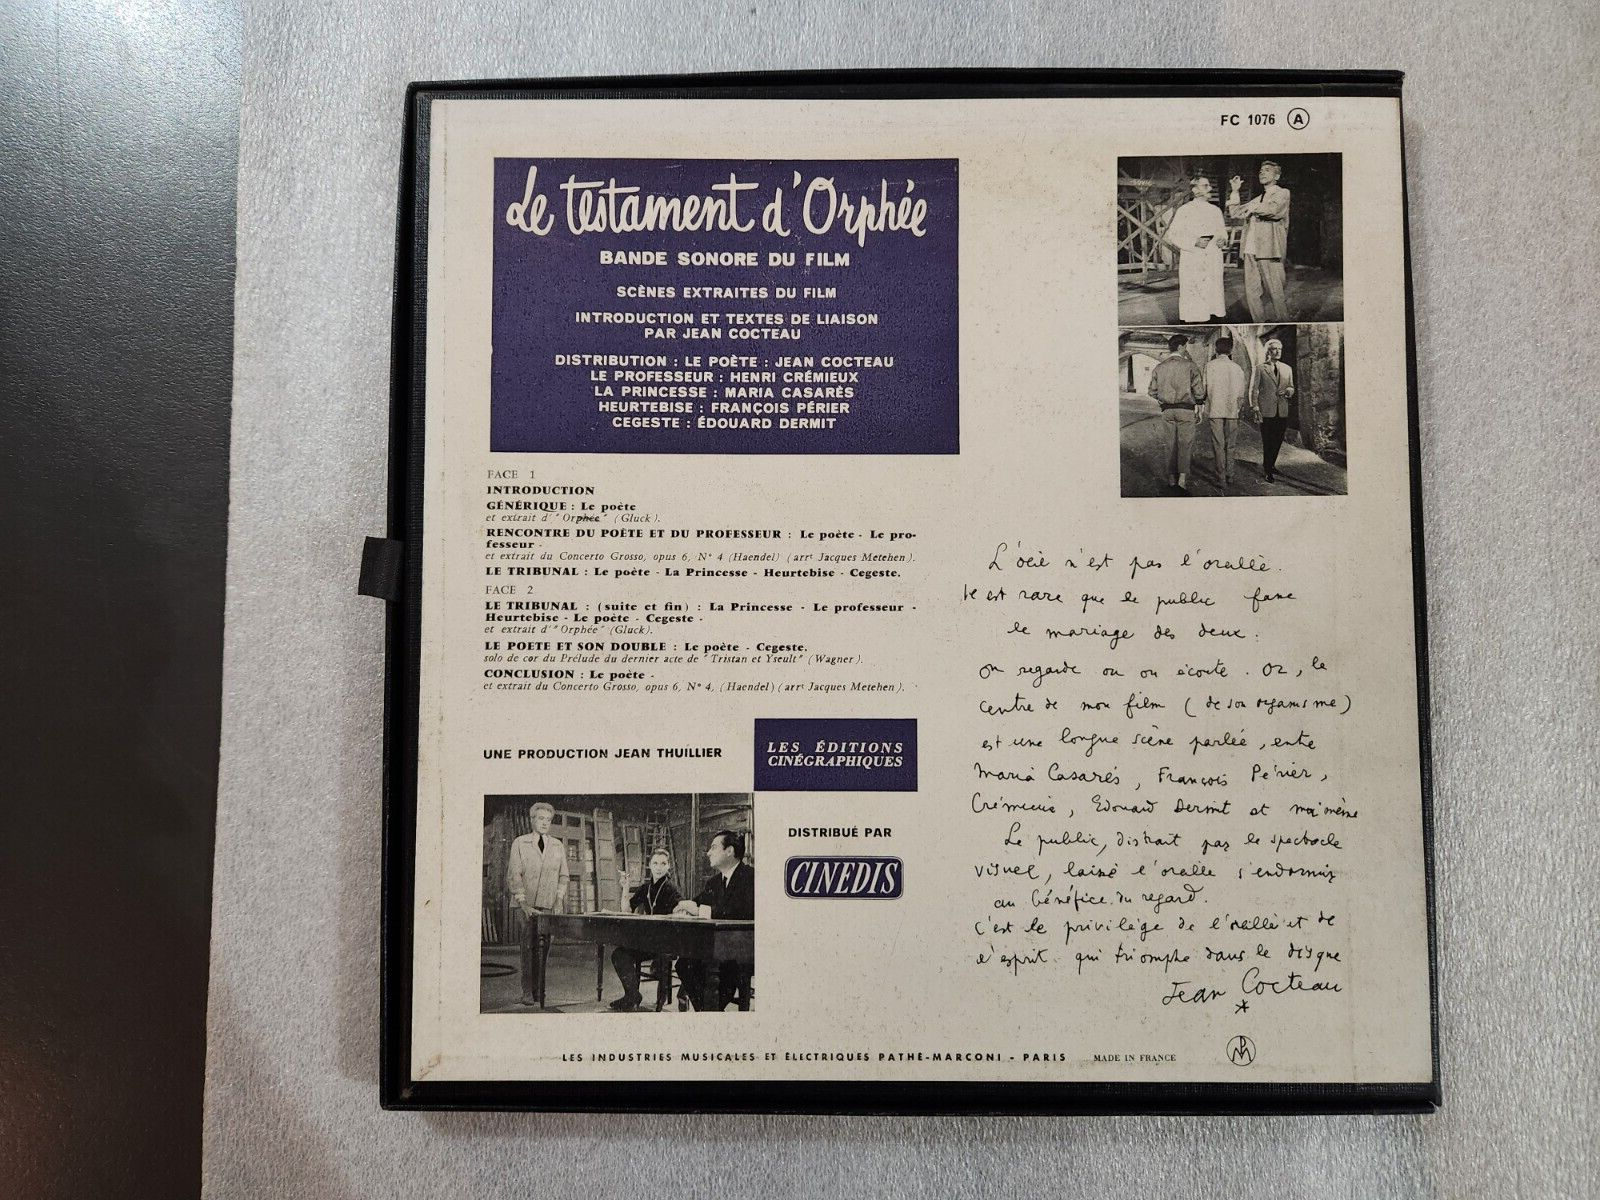 FC 1076 A
Le testament d'Orphée
BANDE SONORE DU FILM
SCÈNES EXTRAITES DU FILM
INTRODUCTION ET TEXTES DE LIAISON
PAR JEAN COCTEAU
DISTRIBUTION : LE POÈTE : JEAN COCTEAU
LE PROFESSEUR : HENRI CRÉMIEUX
LA PRINCESSE : MARIA CASARÈS
HEURTEBISE : FRANÇOIS PÉRIER
CEGESTE : ÉDOUARD DERMIT
FACE 1
INTRODUCTION
GÉNÉRIQUE : Le poète
et extrait d' "Orphée" (Gluck).
RENCONTRE DU POÈTE ET DU PROFESSEUR : Le poète - Le pro-
fesseur -
et extrait du Concerto Grosso, opus 6, N° 4 (Haendel) (arrt Jacques Metehen).
LE TRIBUNAL : Le poète - La Princesse - Heurtebise - Cegeste.
FACE 2
LE TRIBUNAL : (suite et fin) : La Princesse - Le professeur -
Heurtebise - Le poète - Cegeste -
et extrait d' "Orphée" (Gluck).
LE POETE ET SON DOUBLE : Le poète - Cegeste.
solo de cor du Prélude du dernier acte de "Tristan et Yseult" (Wagner).
CONCLUSION : Le poète -
et extrait du Concerto Grosso, opus 6, N° 4, (Haendel) (arrt Jacques Metehen).
UNE PRODUCTION JEAN THUILLIER
LES ÉDITIONS
CINÉGRAPHIQUES
DISTRIBUÉ PAR
CINEDIS
L'œil n'est pas l'oreille.
Il est rare que le public fasse
le mariage des deux.
on regarde ou on écoute. Or, le
centre de mon film (de son organisme)
est une longue scène parlée, entre
Maria Casarés, François Périer,
Crémieux, Edouard Dermit et moi même
Le public, distrait par le spectacle
visuel, laisse l'oreille s'endormir
au bénéfice du regard.
C'est le privilège de l'oreille et de
l'esprit qui triomphe dans le disque
Jean Cocteau
*
LES INDUSTRIES MUSICALES ET ÉLECTRIQUES PATHÉ-MARCONI - PARIS MADE IN FRANCE
PM